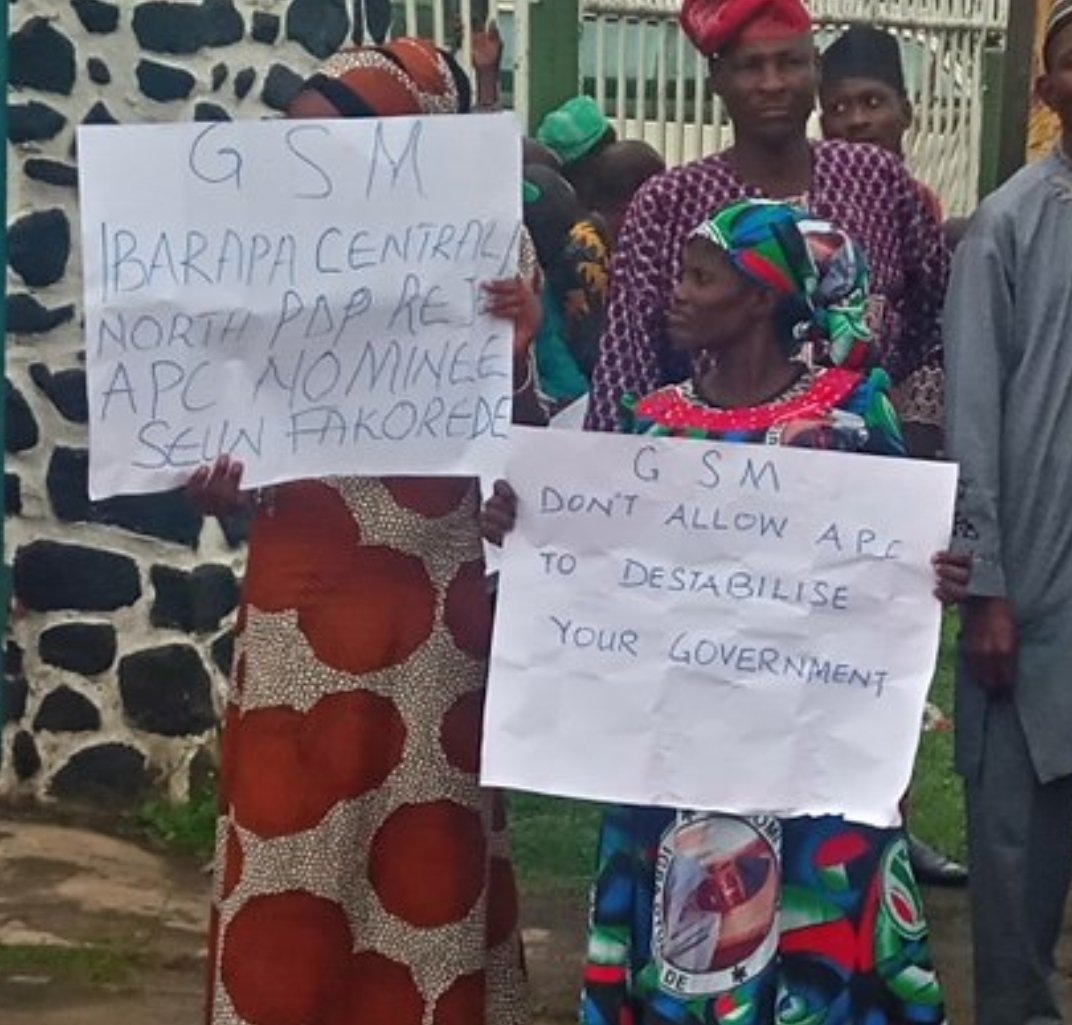 G S M
IBARAPA CENTRAL/
NORTH PDP REJ
APC NOMINEE
SEUN FAKOREDE
G S M
DON'T ALLOW APC
TO DESTABILISE
YOUR GOVERNMENT
DE